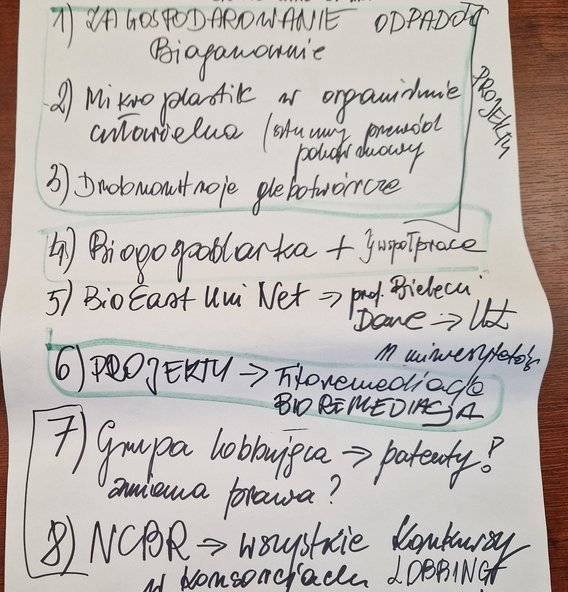 1) ZAGOSPODAROWANIE ODPADÓW
Biogazownie
2) Mikroplastik w organizmie
człowieka (sztuczny przewód
pokarmowy
3) Drobnoustroje glebotwórcze
PROJEKTY
4) Biogospodarka + współpraca
5) BioEast Uni Net → prof. Bielecki
Dane →
11 uniwersytetów
6) PROJEKTY → Fitoremediacja
BIOREMEDIACJA
7) Grupa lobbująca → patenty!
zmiana prawa?
8) NCBR → wszystkie konkursy
w konsorcjach LOBBING